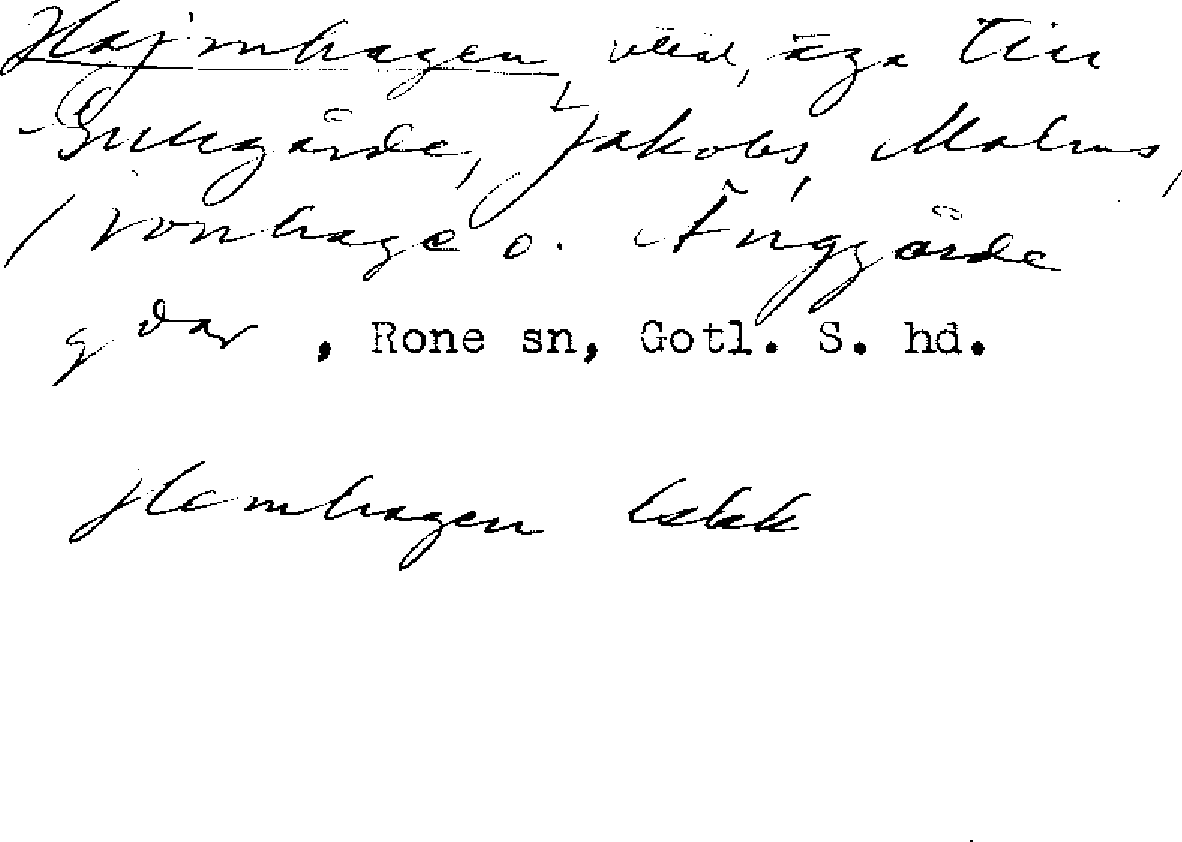 Hajmhagen, väd, äga till
Gullgårde, Jakobs, Malms,
Ivonhage o. Änggårde
gdar, Rone sn, Gotl. S. hd.
Hemhagen